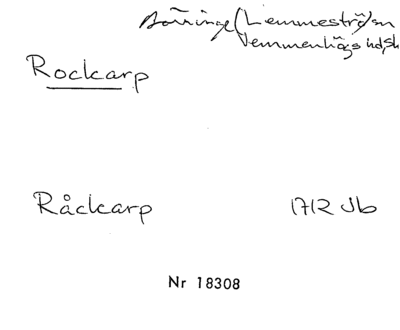 Börringe/Lemmeströ/sn
Vemmenhögs hd, Sk
Rockarp
Råckarp 1712 Jb
Nr 18308